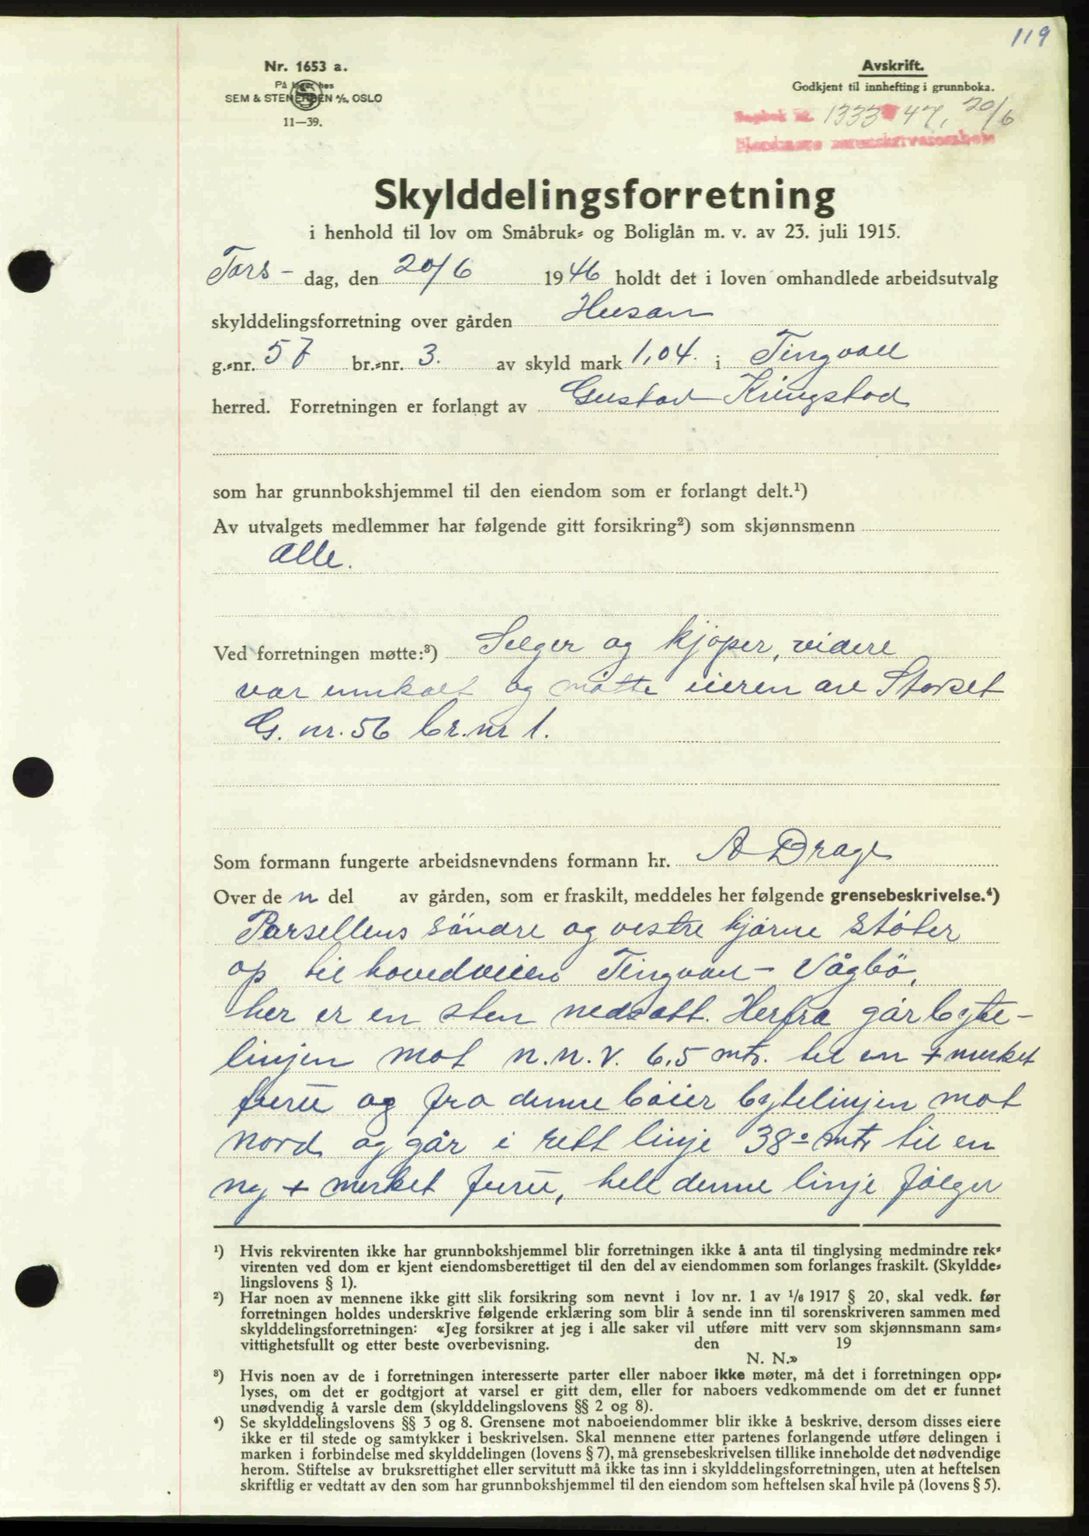 119
Nr. 1653 a.
På lager hos
SEM & STENERSEN A/S, OSLO
11—39.
Avskrift.
Godkjent til innhefting i grunnboka.
Dagbok nr. 1333 47, 20/6
Nordmøre sorenskriverembete
Skylddelingsforretning
i henhold til lov om Småbruk- og Boliglån m. v. av 23. juli 1915.
Tors- dag, den 20/6 1946 holdt det i loven omhandlede arbeidsutvalg
skylddelingsforretning over gården Husan
g.-nr. 57 br.-nr. 3. av skyld mark 1,04. i Tingvoll
herred. Forretningen er forlangt av Gustav Kringstad
som har grunnbokshjemmel til den eiendom som er forlangt delt.¹)
Av utvalgets medlemmer har følgende gitt forsikring²) som skjønnsmenn
alle.
Ved forretningen møtte:³) Selger og kjøper, videre
var innkalt og møtte eieren av Storset
G. nr. 56 br. nr 1.
Som formann fungerte arbeidsnevndens formann hr. A Drage
Over de n del av gården, som er fraskilt, meddeles her følgende grensebeskrivelse.⁴)
Parsellens söndre og vestre hjørne støter
op til hovedveien Tingvoll - Vågbö,
her er en sten nedsatt. Herfra går bytte-
linjen mot n.n.v. 6,5 mtr. til en + merket
furu og fra denne böier bytelinjen mot
nord og går i rett linje 38⁰ mtr til en
ny + merket furu, hele denne linje følger
¹) Hvis rekvirenten ikke har grunnbokshjemmel blir forretningen ikke å anta til tinglysing medmindre rek-
virenten ved dom er kjent eiendomsberettiget til den del av eiendommen som forlanges fraskilt. (Skyldde-
lingslovens § 1).
²) Har noen av mennene ikke gitt slik forsikring som nevnt i lov nr. 1 av 1/6 1917 § 20, skal vedk. før
forretningen holdes underskrive følgende erklæring som blir å sende inn til sorenskriveren sammen med
skylddelingsforretningen: «Jeg forsikrer at jeg i alle saker vil utføre mitt verv som skjønnsmann sam-
vittighetsfullt og etter beste overbevisning. den 19
N. N.»
³) Hvis noen av de i forretningen interesserte parter eller naboer ikke møter, må det i forretningen opp-
lyses, om det er godtgjort at varsel er gitt dem, eller for naboers vedkommende om det er funnet
unødvendig å varsle dem (skylddelingslovens §§ 2 og 8).
⁴) Se skylddelingslovens §§ 3 og 8. Grensene mot naboeiendommer blir ikke å beskrive, dersom disses eiere
ikke er til stede og samtykker i beskrivelsen. Skal mennene etter partenes forlangende utføre delingen i
marken i forbindelse med skylddelingen (lovens § 7), må grensebeskrivelsen tillike inneholde det nødvendige
herom. Stiftelse av bruksrettighet eller servitutt må ikke tas inn i skylddelingsforretningen, uten at heftelsen
skriftlig er vedtatt av den som har grunnbokshjemmel til den eiendom som heftelsen skal hvile på (lovens § 5).